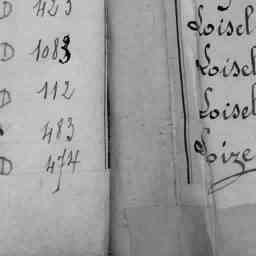 D 423
D 1083
D 112
483
D 474
Loisel
Loisel
Loisel
Loize